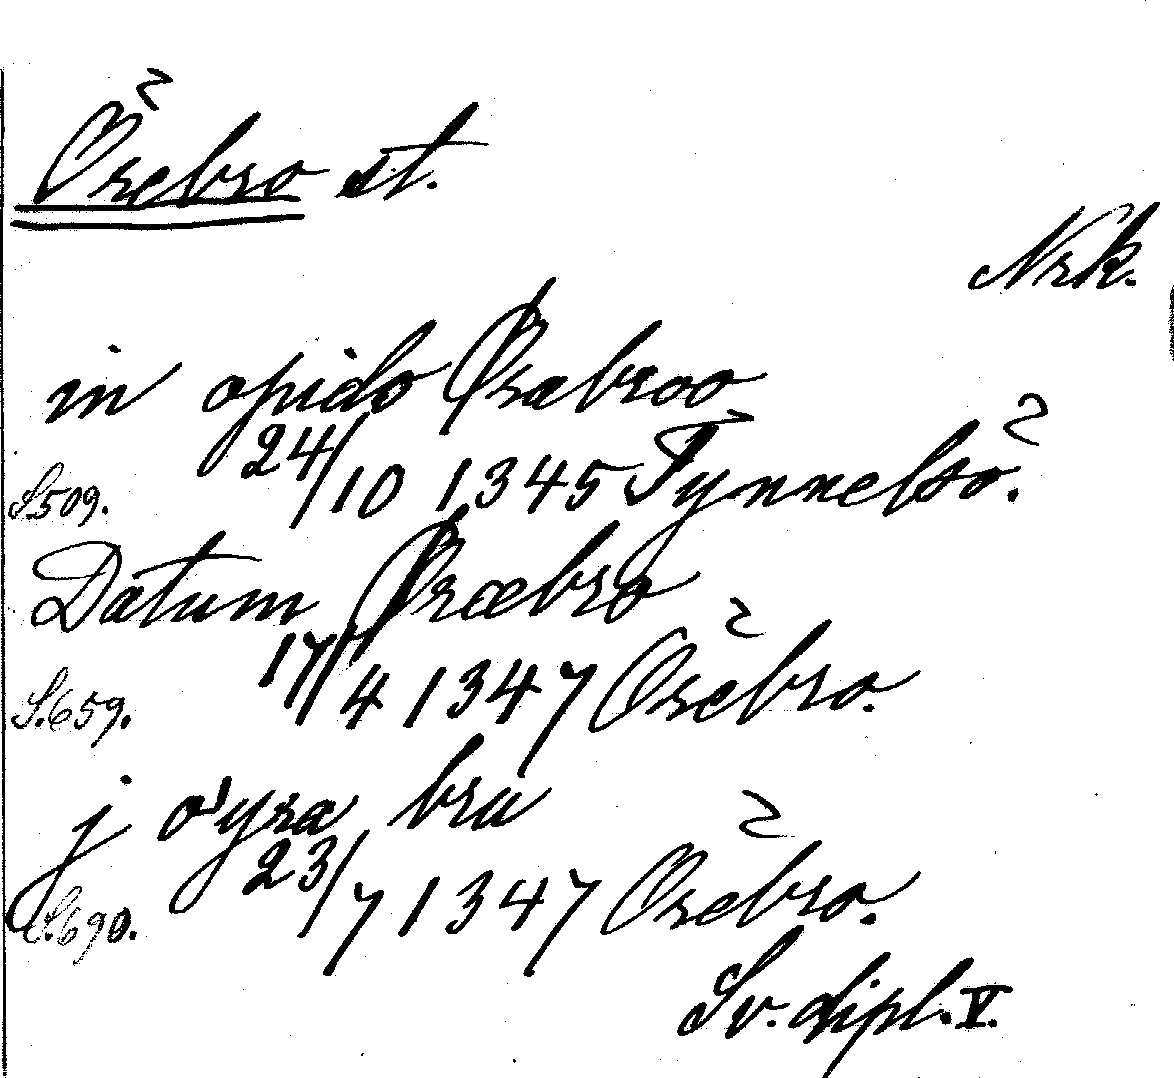 Örebro st.
Nrk.
in opido Ørabroo
S.509. 24/10 1345 Tynnelsö.
Datum Øræbro
S.659. 17/4 1347 Örebro.
j o'yra bru
S.690. 23/7 1347 Örebro.
Sv. dipl. V.